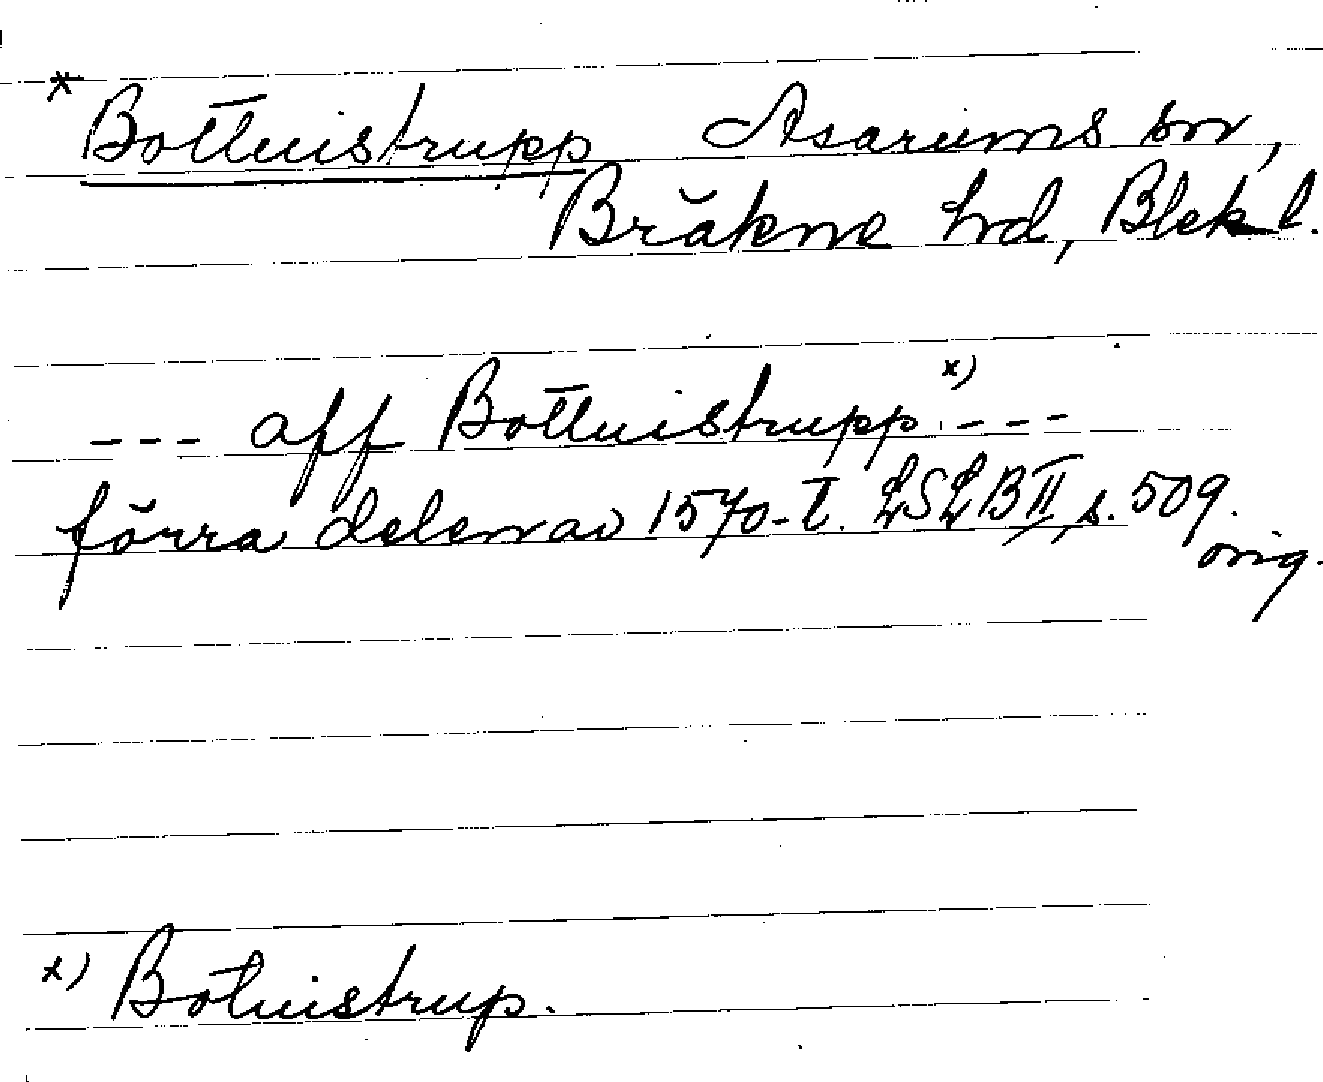 * Bottnistrupp Asarums sn,
Bräkne hrd, Blek l.
--- aff Bottnistrupp x) ---
förra delen av 1570-t. LSLB II, s. 509.
orig.
x) Botnistrup.